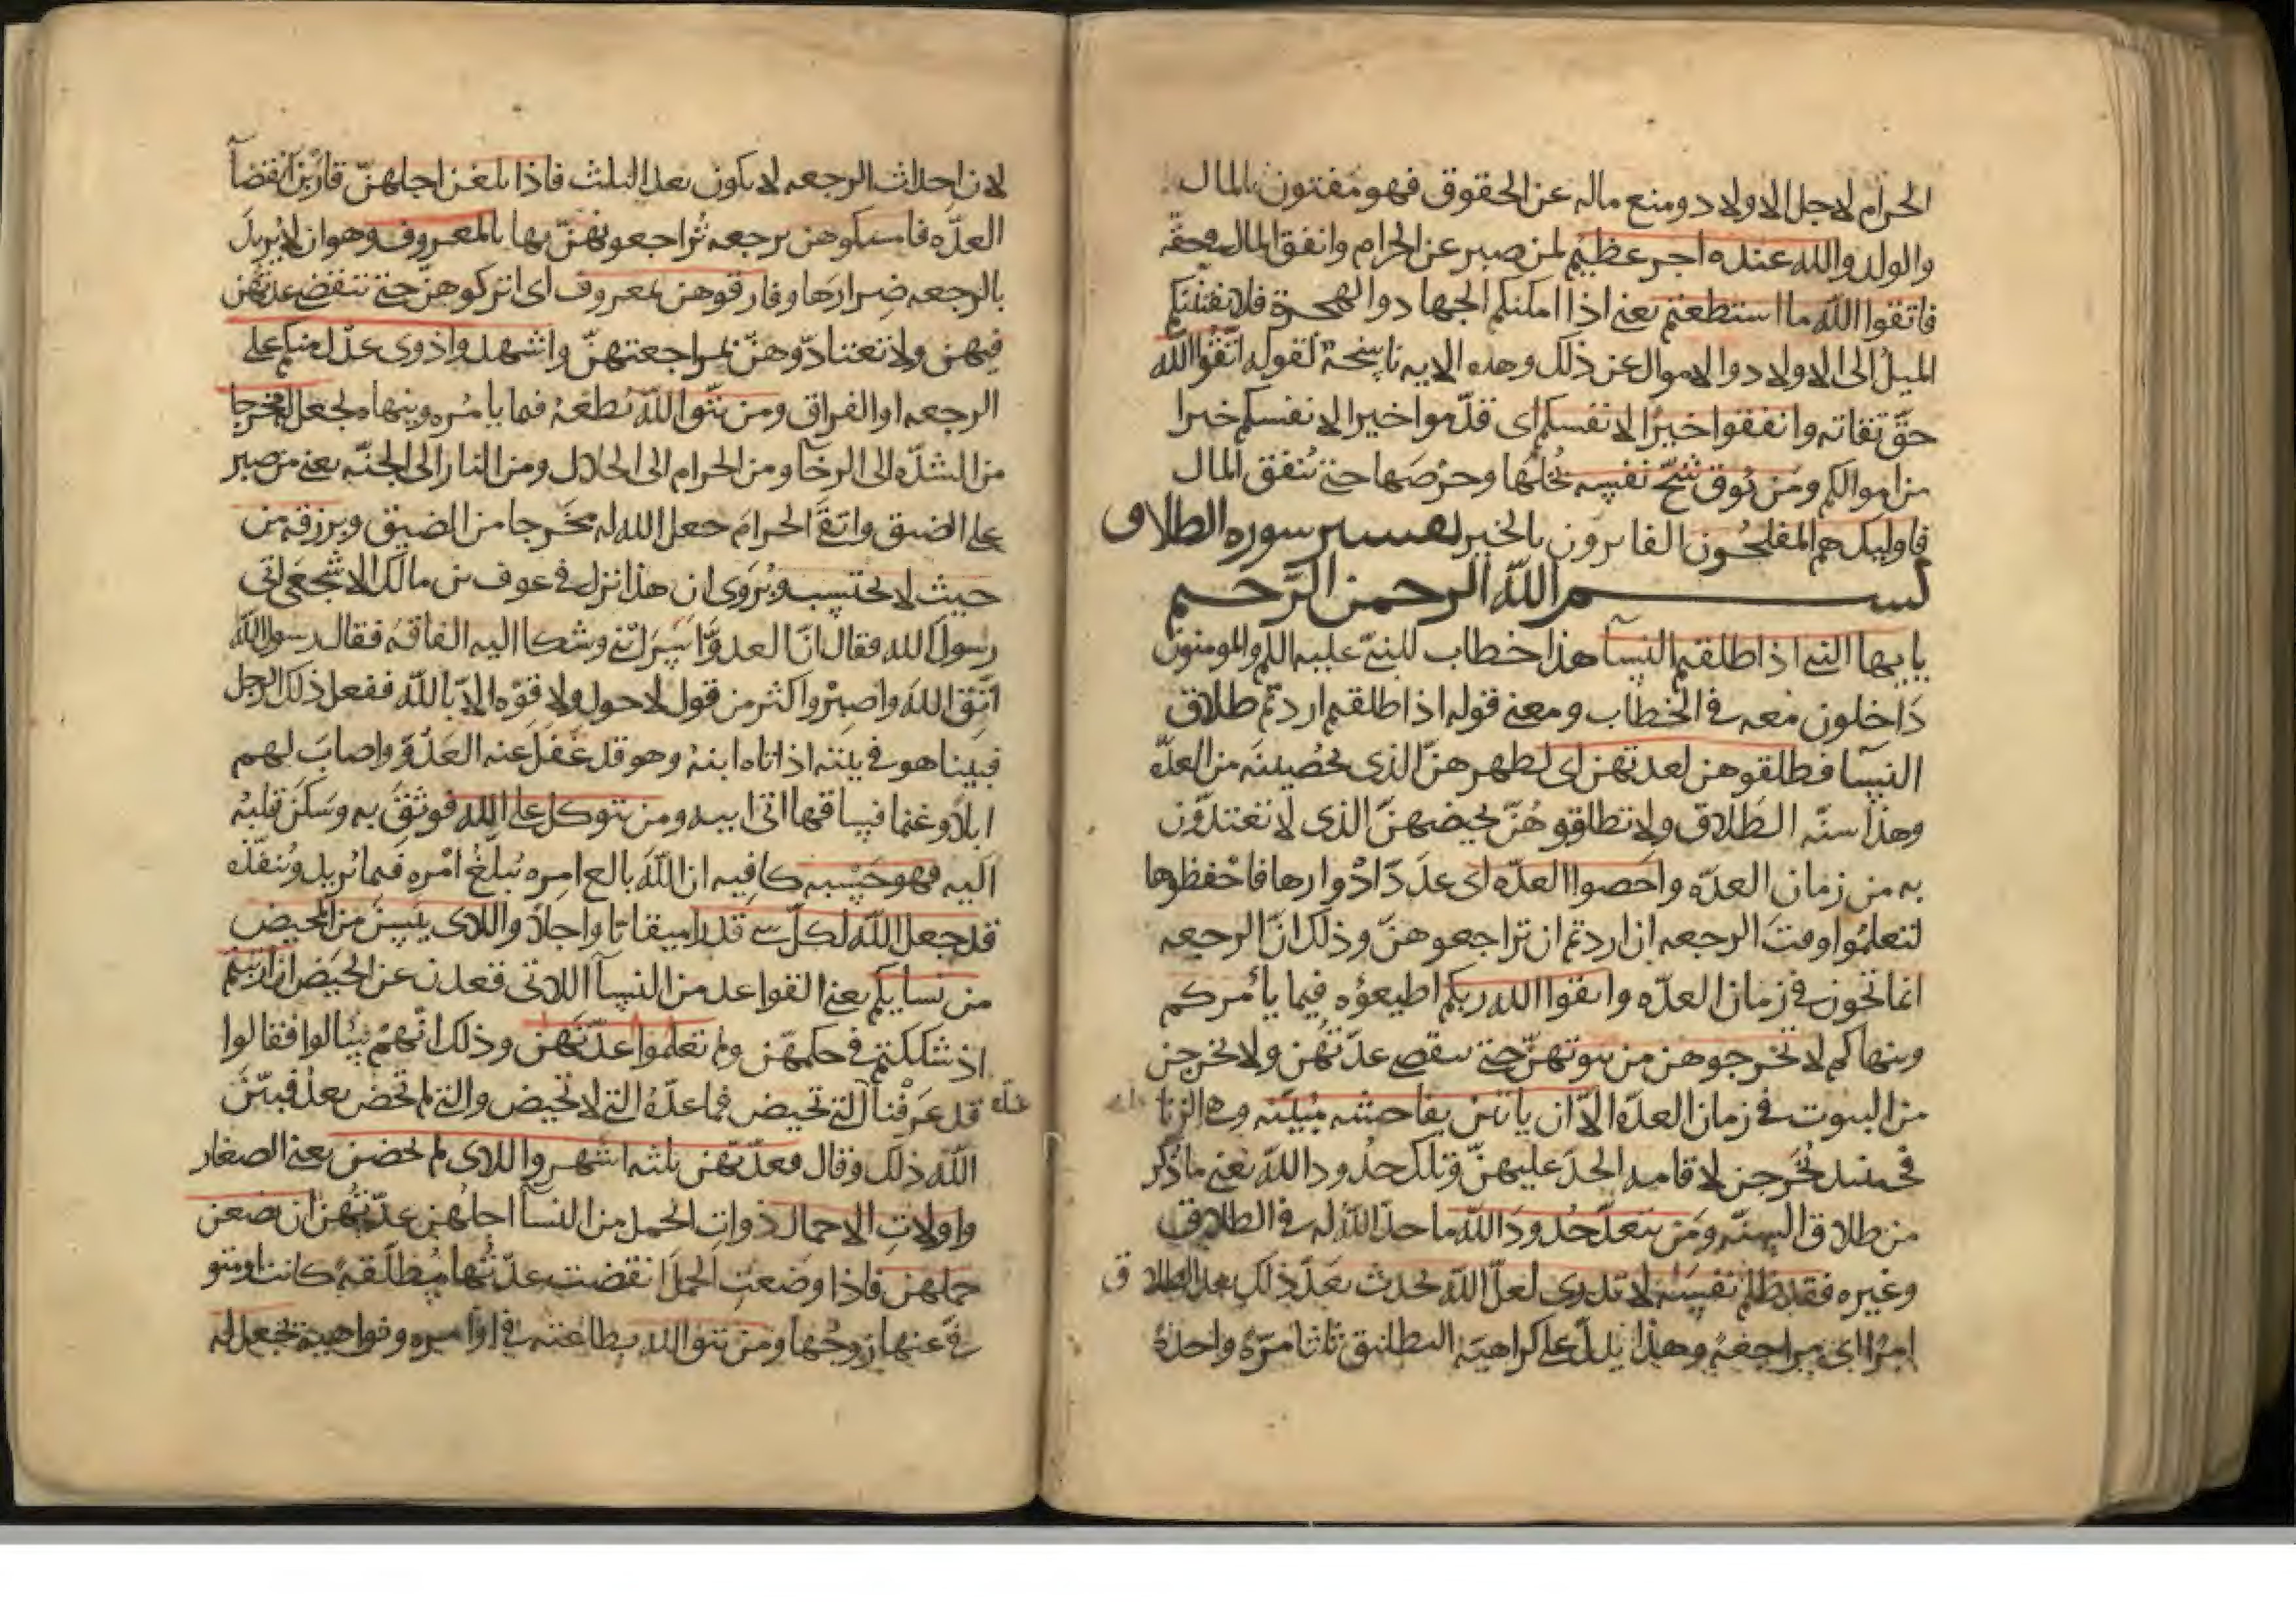 الحرام لاجل الاولاد ومنع ماله عن الحقوق فهو مفتون بالمال
والولد والله عنده اجر عظيم لمن صبر عن الحرام وانفق المال في حقه
فاتقوا الله ما استطعتم يعني اذا امكنكم الجهاد والهجرة فلا يفتننكم
الميل الى الاولاد والاموال عن ذلك وهذه الايه ناسخة لقوله اتقوا الله
حق تقاته وانفقوا خيرا لانفسكم اى قدموا خيرا لانفسكم خيرا
من اموالكم ومن يوق شح نفسه بخلها وحرصها حتى ينفق المال
فاوليك هم المفلحون الفايزون بالخير تفسير سوره الطلاق
بسم الله الرحمن الرحيم
يا يها النبي اذا طلقتم النسآ هذا خطاب للنبي عليه السلم والمومنون
داخلون معه في الخطاب ومعنى قوله اذا طلقتم اردتم طلاق
النسآ فطلقوهن لعدتهن اى لطهرهن الذى يحصينه من العدّه
وهذا سنه الطلاق ولا تطلقوهنّ لحيضهنّ الذى لا تعتددن
به من زمان العدّه واحصوا العدّه اى عدد ادوارها فاحفظوها
لتعلموا وقت الرجعه ان اردتم ان تراجعوهنّ وذلك انّ الرجعه
انما تجوز في زمان العدّه واتقوا الله ربكم اطيعوه فيما يأمركم
وينهاكم لا تخرجوهن من بيوتهنّ حتى تنقضي عدّتهن ولا يخرجن
من البيوت في زمان العدّه الاّ ان ياتين بفاحشه مبيّنه وهى الزنا
فحينئذ تخرجن لاقامه الحدّ عليهنّ وتلك حدود الله يعني ما ذكر
من طلاق السنه ومن يتعدّ حدود الله ما حدّ الله له في الطلاق
وغيره فقد ظلم نفسه لا تدرى لعلّ الله يحدث بعد ذلك بعد الطلاق
امرا اى مراجعة وهذا يدلّ على كراهية التطليق ثلثا مرّة واحدة
لان احداث الرجعه لا يكون بعد الثلث فاذا بلغن اجلهنّ قاربن انقضآ
العدّه فامسكوهن برجعه تراجعونهنّ بها بالمعروف وهو ان لا يريد
بالرجعه ضرارها وفارقوهن بمعروف اى اتركوهنّ حتى تنقضي عدتهن
فيبنّ ولا تعتادّوهنّ بمراجعتهنّ واشهدوا ذوى عدل منكم على
الرجعه او الفراق ومن يتّق الله يطعهُ فيما يامره وينهاه يجعل له مخرجا
من الشدّه الى الرخآ ومن الحرام الى الحلال ومن النار الى الجنّه يعني من صبر
على الضيق واتقى الحرام جعل الله له مخرجا من الضيق ويرزقه من
حيث لا يحتسب ويروى ان هذا نزل في عوف بن مالك الاشجعى اتى
رسول الله فقال انّ العدوّ اسر ابنى وشكا اليه الفاقه فقال رسول الله
اتّق الله واصبر واكثر من قول لا حول ولا قوّه الاّ بالله ففعل ذلك الرجل
فبينا هو في بيته اذ اتاه ابنه وهو قد غفل عنه العدوّ واصاب لهم
ابلا وغنما فساقها اتى ابيه ومن يتوكل على الله فوثق به وسكن قلبه
اليه فهو حسبه كافيه ان الله بالغ امره يبلغ امره فيما يريد وينفذه
قد جعل الله لكلّ شي قدرا ميقاتا واجلا واللاى ييسن من المحيض
من نسايكم يعنى القواعد من النسآ اللاتى قعدن عن الحيض ان ارتبتم
اذ شككتم في حكمهّن ولم تعلموا عدّتهن وذلك انّهم سالوا فقالوا
قد عرفنا عدّه التي تحيض فما عدّه التي لا تحيض والتي لم تحض بعد فبيّن
الله ذلك وقال فعدّتهن ثلثه اشهر واللاى لم يحضن يعنى الصغار
واولات الاحمال ذوات الحمل من النسآ اجلهن عدّتهن ان يضعن
حملهن فاذا وضعت الحمل انقضت عدّتها مطلّقة كانت او متو
فّى عنها زوجها ومن يتق الله بطاعته في اوامره ونواهيه يجعل له